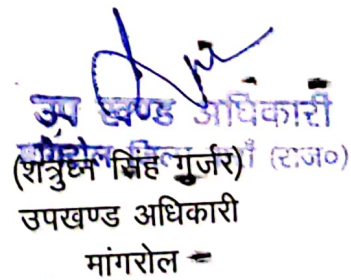 उप खण्ड अधिकारी
(राज०)
(शत्रुघ्न सिंह गुर्जर)
उपखण्ड अधिकारी
मांगरोल